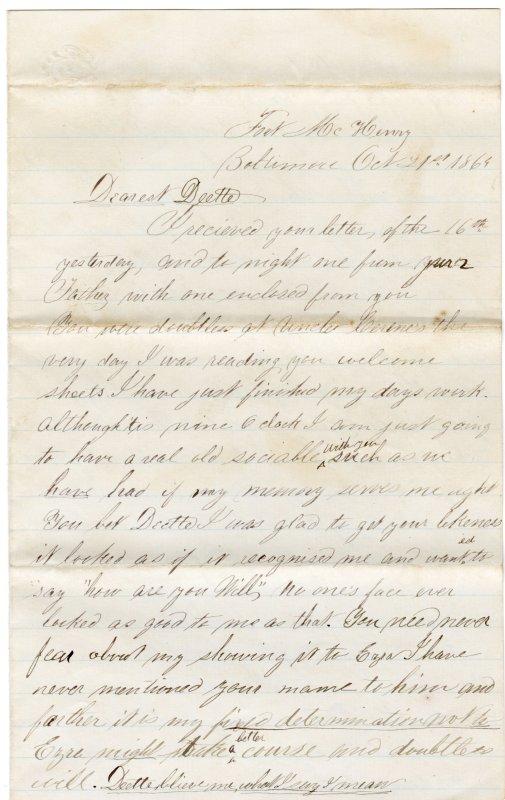 Fort Mc Henry
Baltimore Oct 21st 1864
Dearest Deette
I recieved your letter, of the 16th
yesterday, and to night one from your
Father with one enclosed from you
You were doubtless at Uncle the
very day I was reading you welcome
sheets I have just finished my days work.
although tis nine O clock I am just going
to have a real old sociable with you such as we
have had if my memory serves me right.
You bet Deette I was glad to get your likeness
it looked as if it recognised me and wanted to
say "how are you Will," no one's face ever
looked as good to me as that. You need never
fear about my showing it to Ezra I have
never mentioned your name to him and
farther it is my fixed determination not to
Ezra might take a better course and doubtless
will. Deette blieve me, what I say I mean